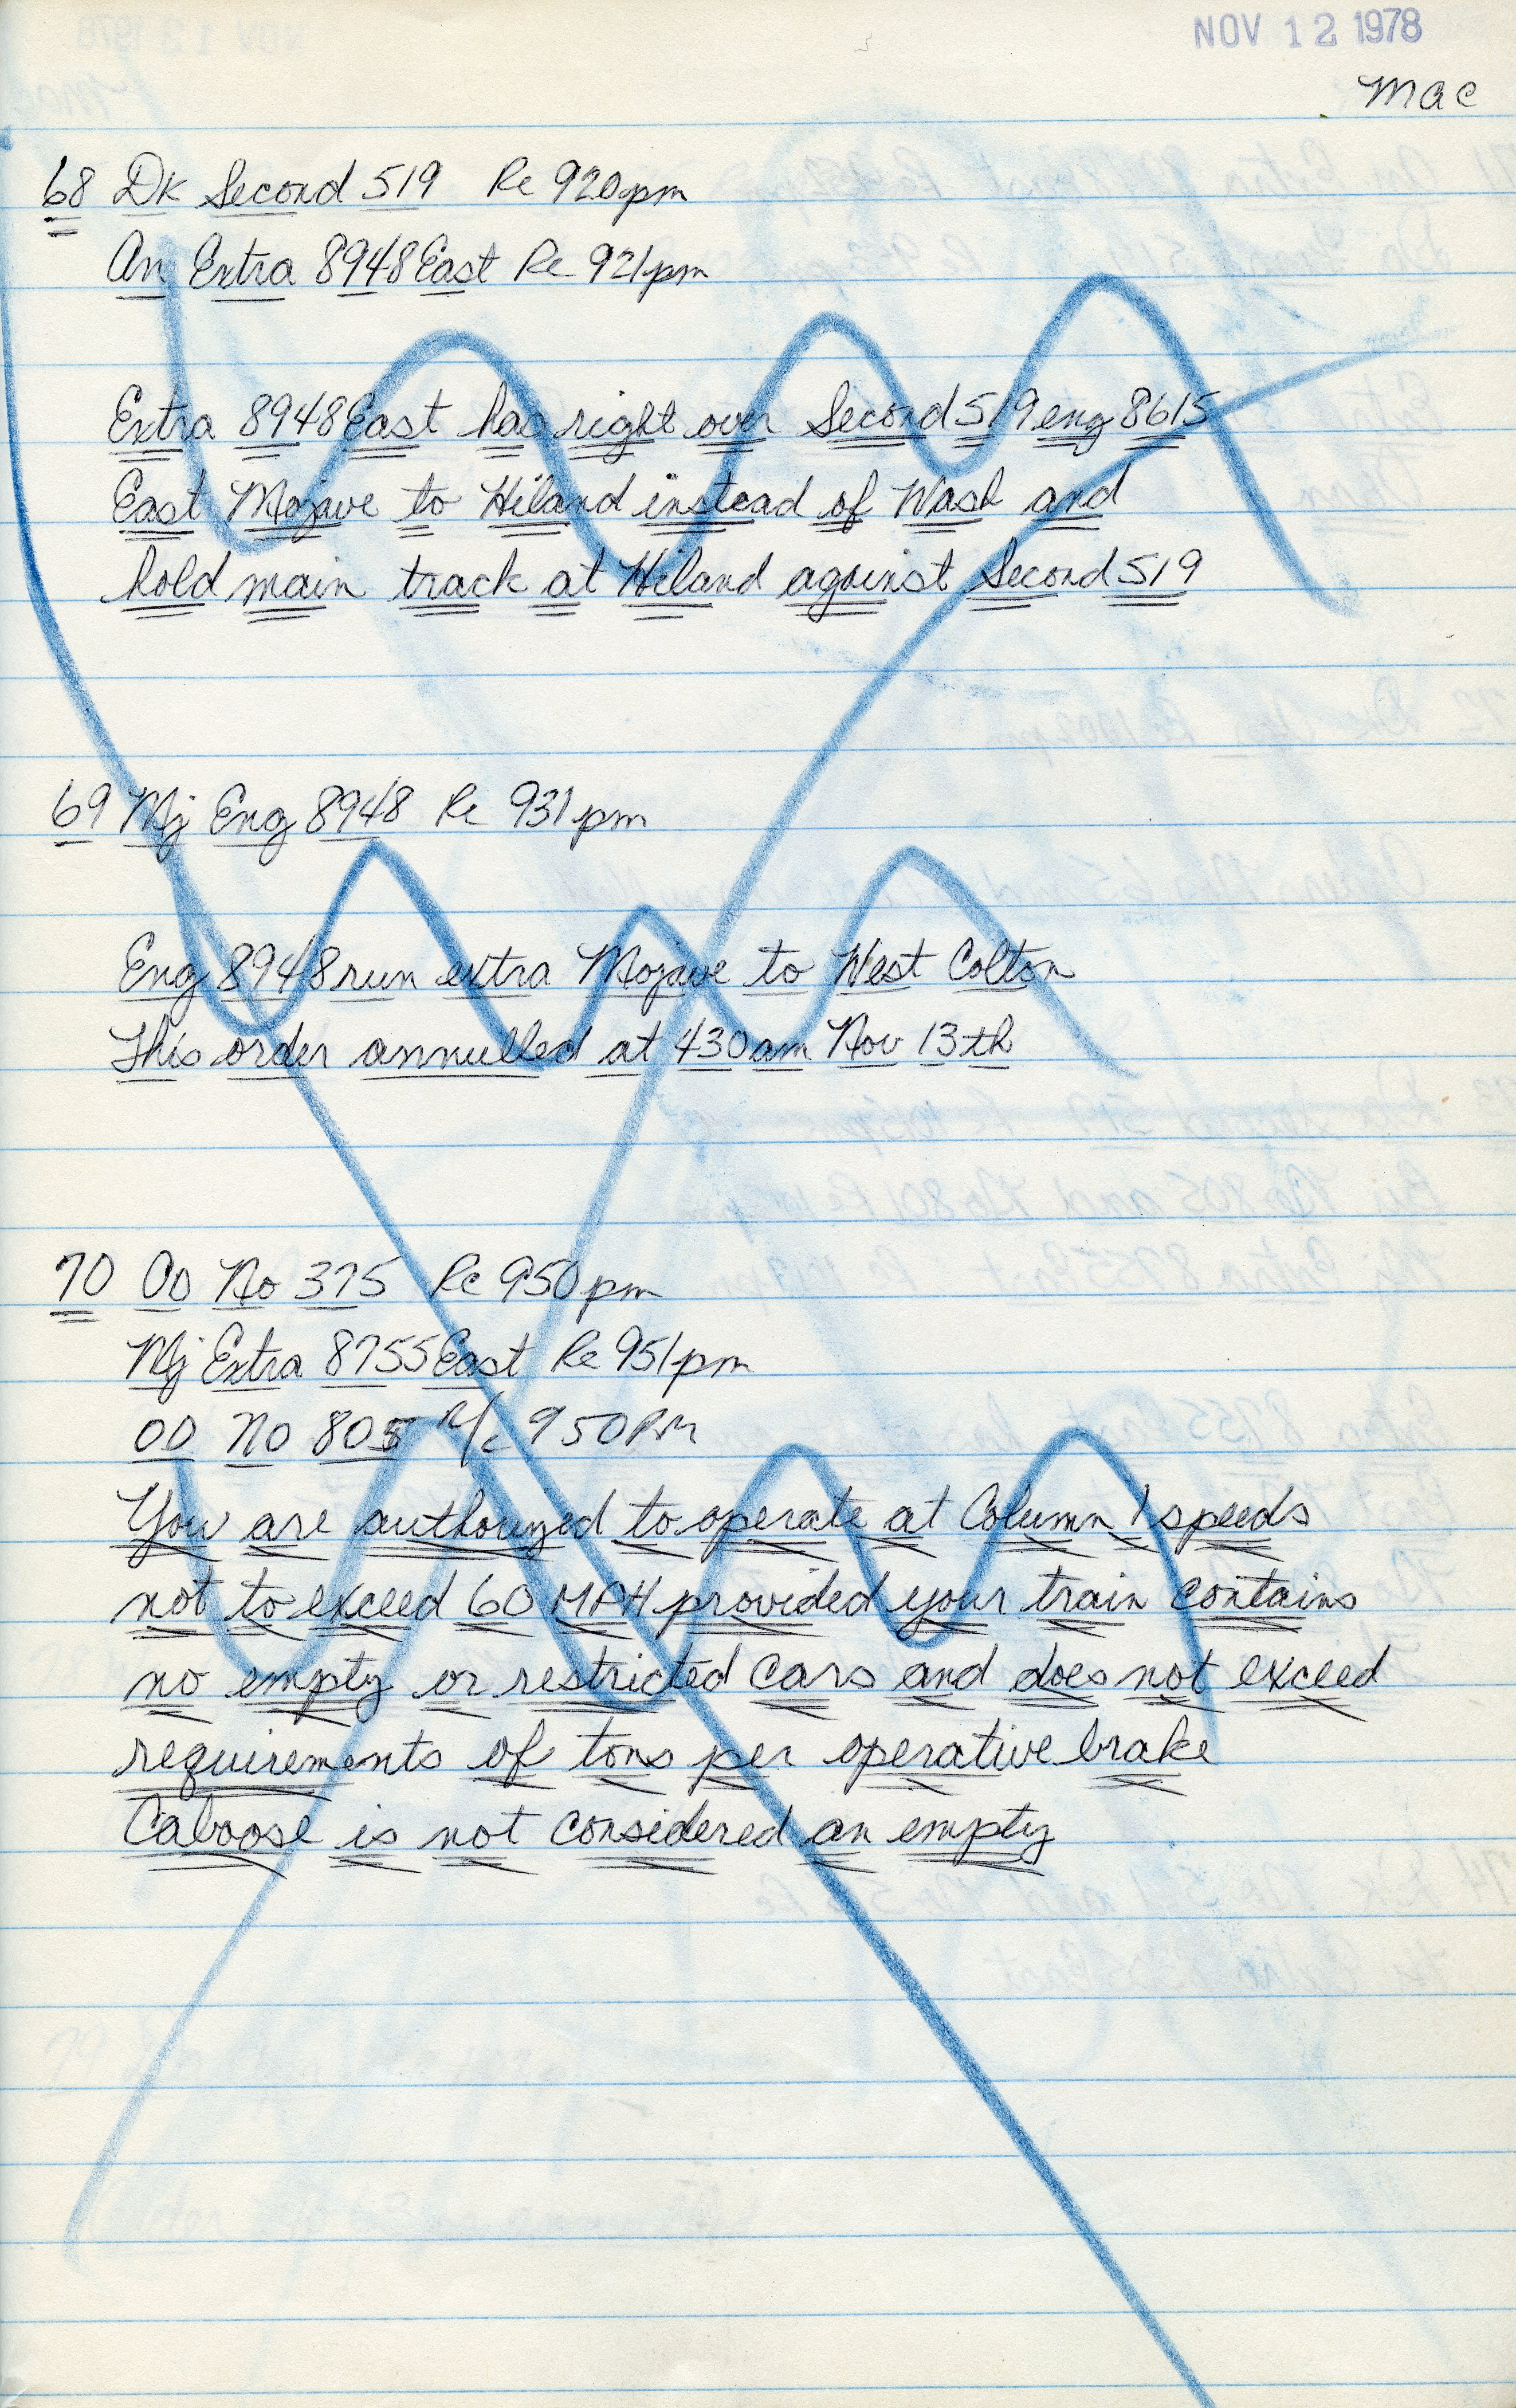 NOV 12 1978
Mac
68 Dk Second 519 Rc 920pm
An Extra 8948 East Rc 921pm
Extra 8948 East has right over Second 519 eng 8615
East Mojave to Hiland instead of Wash and
hold main track at Hiland against Second 519
69 Mj Eng 8948 Rc 931pm
Eng 8948 run extra Mojave to West Colton
This order annulled at 430am Nov 13th
70 OD No 375 Rc 950pm
Mj Extra 8755 East Rc 951pm
OD No 805 R/c 950PM
You are authorized to operate at Column 1 speeds
not to exceed 60 MPH provided your train contains
no empty or restricted cars and does not exceed
requirements of tons per operative brake
Caboose is not considered an empty